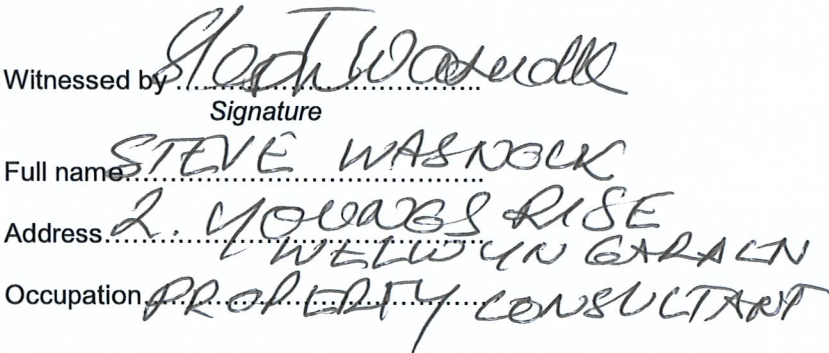 Witnessed by
Signature
Full name STEVE WASNOCK
Address 2. YOUNGS RISE
WELWYN GARDEN
Occupation PROPERTY CONSULTANT